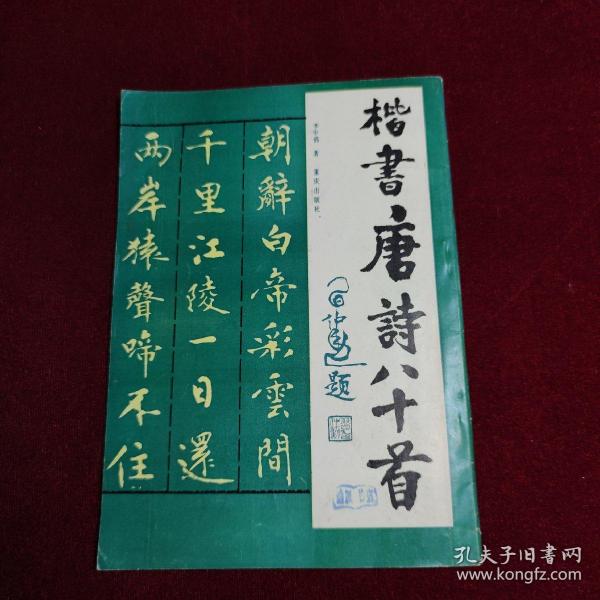 楷書唐詩八十首
著
重庆出版社
題
朝辭白帝彩雲間
千里江陵一日還
兩岸猿聲啼不住
孔夫子旧书网
www.kongfz.com